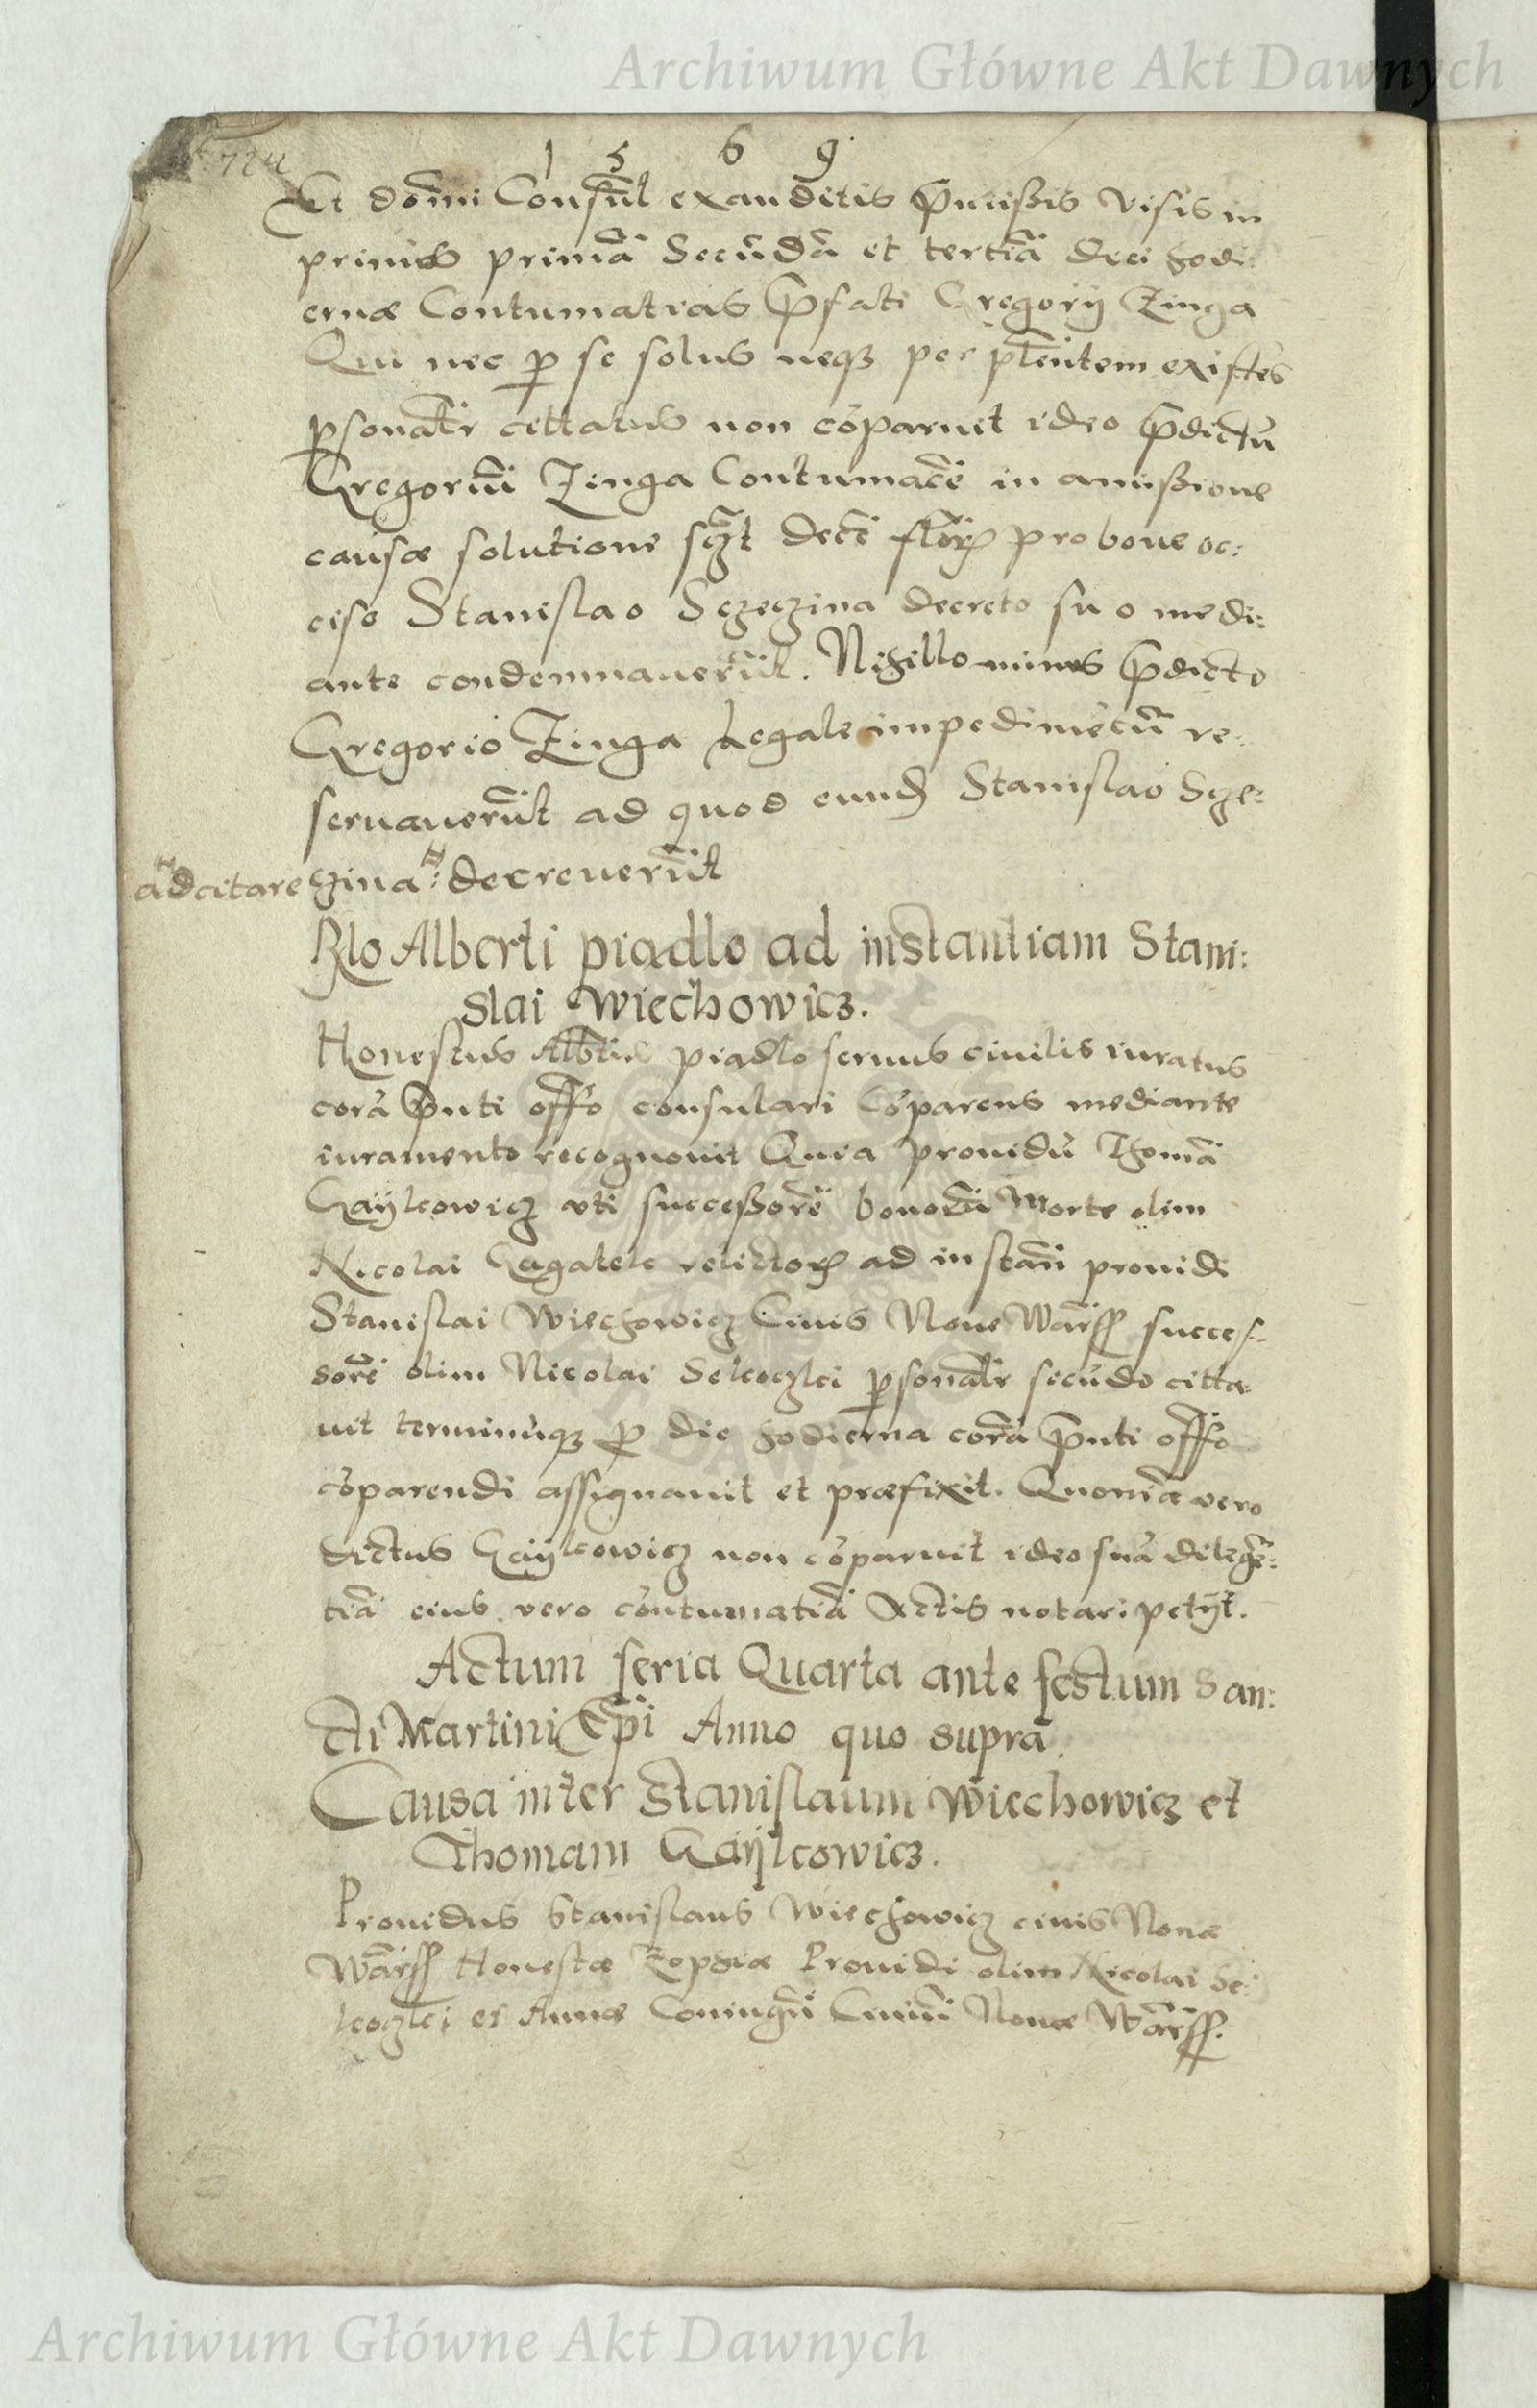 Archiwum Główne Akt Dawnych
1 5 6 9
Et dom̃i Consul̃ exauditis p̃missis visis in
primis primã Secũdã et tertiã diei hodi:
ernæ Contumatias p̃fati Gregorij Zinga
Qui nec ꝑ se solus neqꝫ per pleñitem existẽs
ꝑsonalr̃ cittatus non cõparuit ideo p̃dictũ
Gregoriũ Zinga Contumacẽ in amissione
causæ solutione decẽ pro boue oc:
ciso Stanislao Szeczina decreto suo medi:
ante condemnauerũt. Nihillominus p̃dicto
Gregorio Zinga Legale impedimẽtũ re:
seruauerũt ad quod eund Stanislao Sze:
adcitare czina decreuerũt
Rlo Alberti piadlo ad instantiam Stani:
slai Wiechowicz.
Honestus Albt̃us piadlo seruus ciuilis iuratus
corã p̃nti offo consulari cõparens mediante
iuramento recognouit Quia prouidũ Thomã
Gaÿkowicz vti successorẽ bonorũ Morte olim
Nicolai relictorꝝ ad instañ prouidi
Stanislai Wiechowicz Ciuis Noue Warss̃ succes:
sorẽ olim Nicolai Sekoczki ꝑsonalr̃ secũdo citta:
uit terminũqꝫ ꝑ die hodierna corã p̃nti offo
cõparendi assignauit et præfixit. Quoniã vero
dictus Gaÿkowicz non cõparuit ideo suã diligẽ:
tiã eius vero cõntumatiã Actis notari petÿt.
Actum feria Quarta ante festum San:
cti Martini Ep̃i Anno quo supra.
Causa inter Stanislaum Wiechowicz et
Thomam Gaÿkowicz.
Prouidus Stanislaus Wiechowicz ciuis Nouæ
Warss̃ Honestæ Zophiæ Prouidi olim Nicolai Se:
koczki et Annæ Coniugũ Ciuiũ Nouæ Warss̃.
Archiwum Główne Akt Dawnych